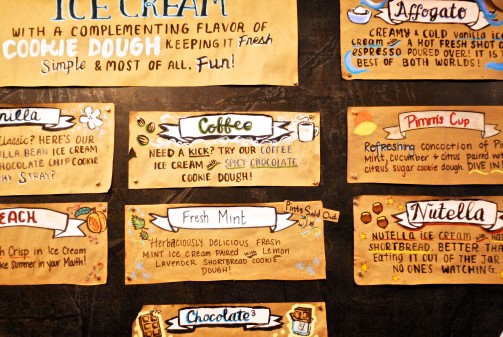 ICE CREAM
WITH A COMPLEMENTING FLAVOR OF
COOKIE DOUGH KEEPING IT Fresh
Simple & MOST OF ALL, Fun!
Affogato
CREAMY & COLD vanilla ice
cream w/ A HOT FRESH SHOT OF
espresso POURED OVER! IT IS T
BEST OF BOTH WORLDS!
nilla
Classic? HERE'S OUR
ILLA BEAN ICE CREAM
CHOCOLATE CHIP COOKIE
HY STRAY?
Coffee
NEED A KICK? TRY OUR COFFEE
ICE CREAM w/ SPICY CHOCOLATE
COOKIE DOUGH!
Pimm's Cup
Refreshing concoction of Pimm
Mint, cucumber + citrus paired with
citrus sugar cookie dough. DIVE IN
EACH
h Crisp in Ice Cream
ke summer in your Mouth!
Fresh Mint
Pints Sold Out
HERBACIOUSLY DELICIOUS FRESH
MINT ICE CREAM PAIRED with Lemon
LAVENDER SHORTBREAD COOKIE
DOUGH!
Nutella
NUTELLA ICE CREAM with HO
SHORTBREAD. BETTER THA
Eating it OUT OF THE JAR
NO ONE'S WATCHING.
Chocolate³